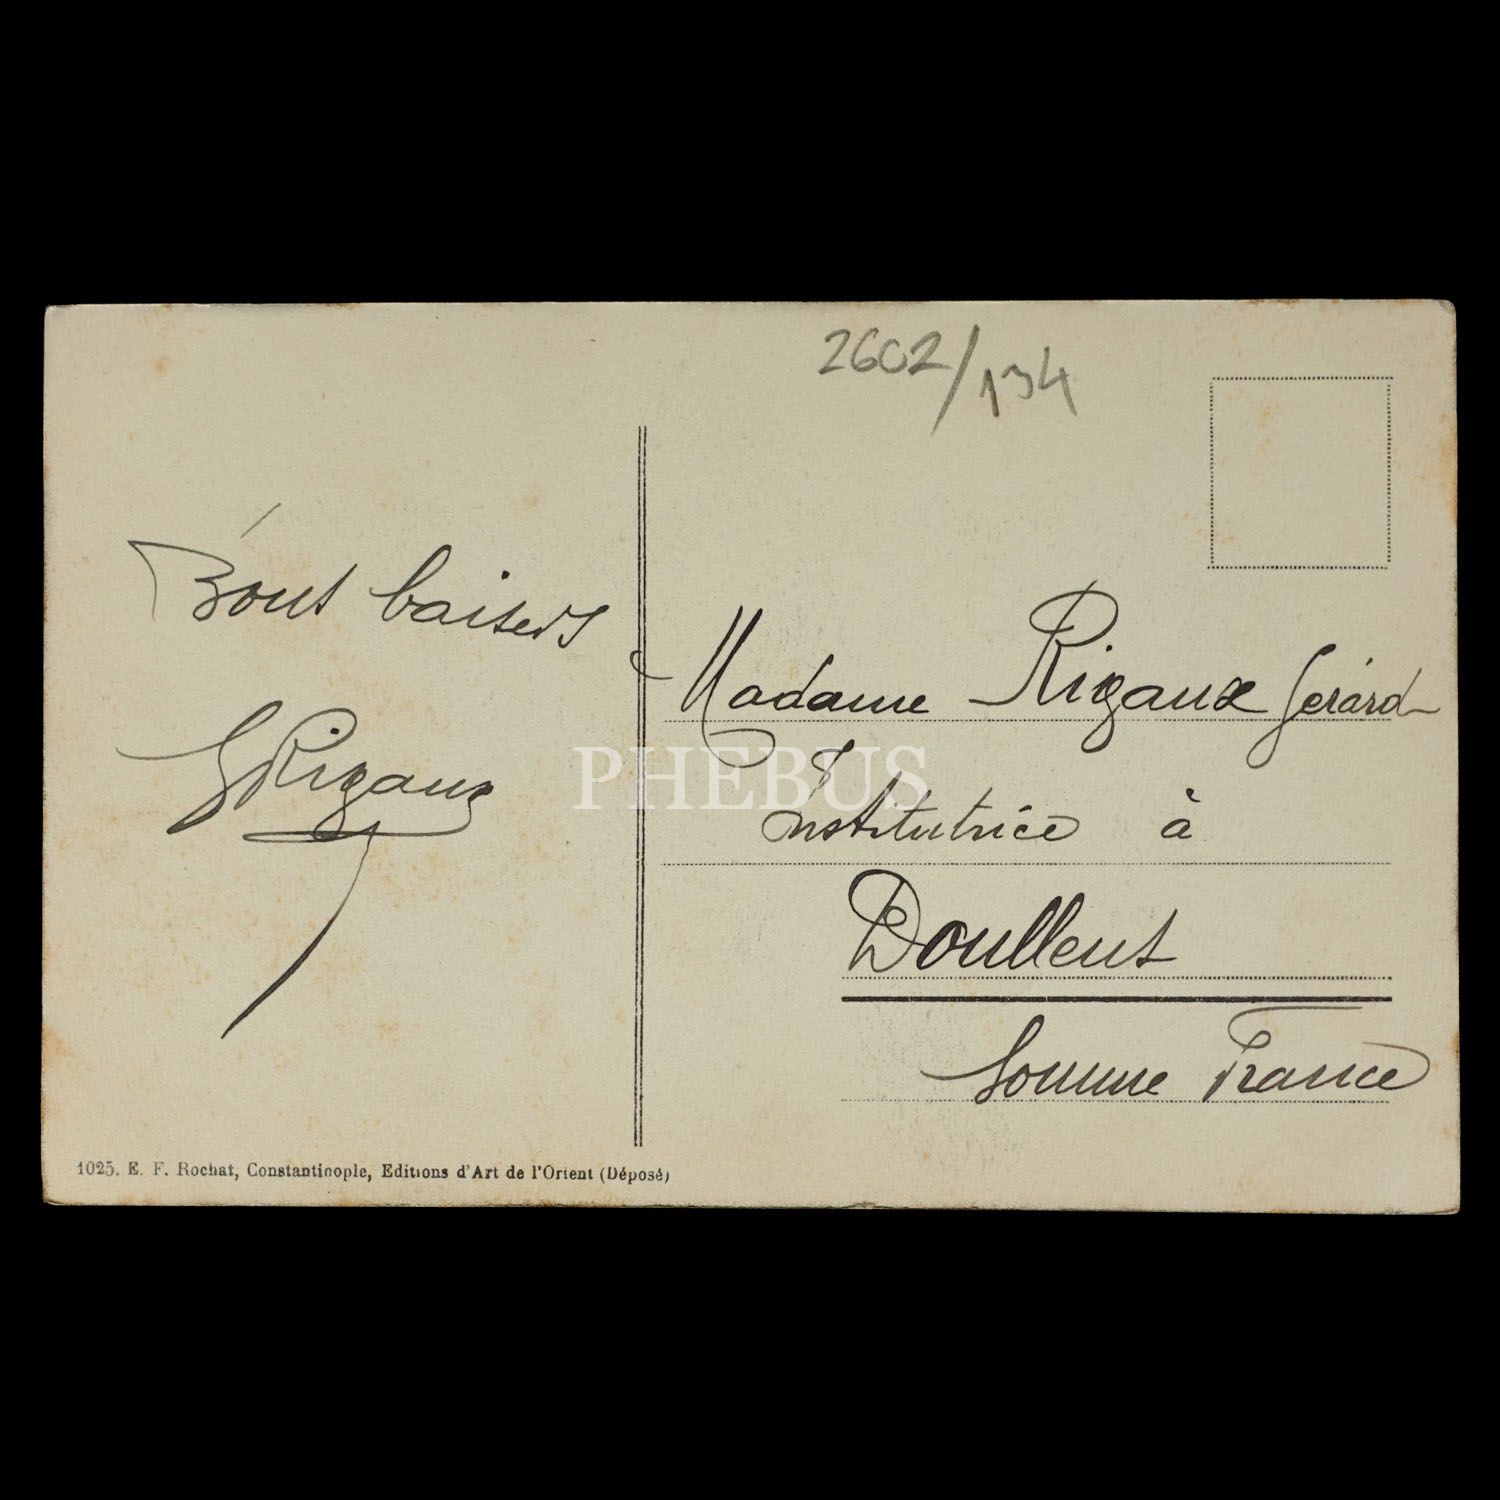 2602/134
Bons baisers
GRigaux
Madame Rigaux Gérard
Institutrice à
Doullens
Somme France
PHEBUS
1025. E. F. Rochat, Constantinople, Editions d'Art de l'Orient (Déposé)